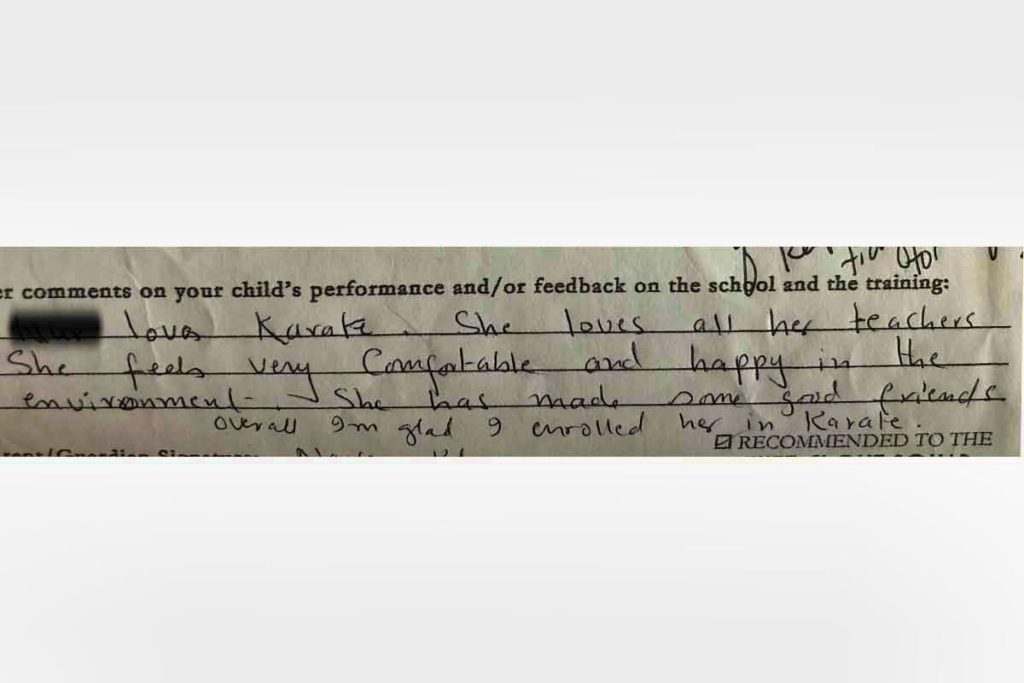 er comments on your child's performance and/or feedback on the school and the training:
loves Karate. She loves all her teachers
She feels very Comfortable and happy in the
environment. She has made some good friends
Overall I'm glad I enrolled her in Karate.
☑ RECOMMENDED TO THE